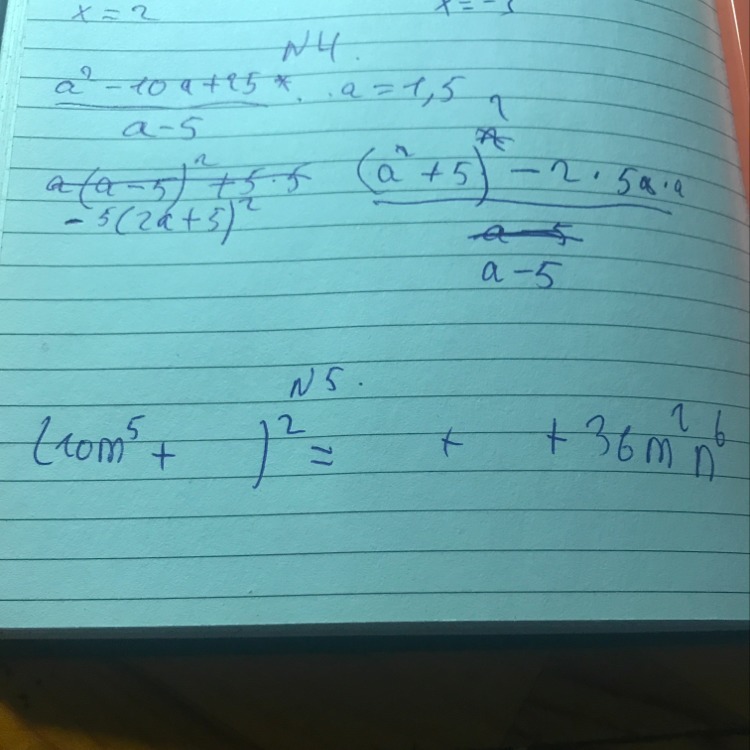 x = 2
x = -3
N4.
a² - 10a + 25 *. . a = 1,5
a - 5
a(a - 5)² + 5 · 5
- 5(2a + 5)²
(a² + 5)² - 2 · 5a · a
a - 5
a - 5
N5.
(10m⁵ + )² = + + 36m²n⁶